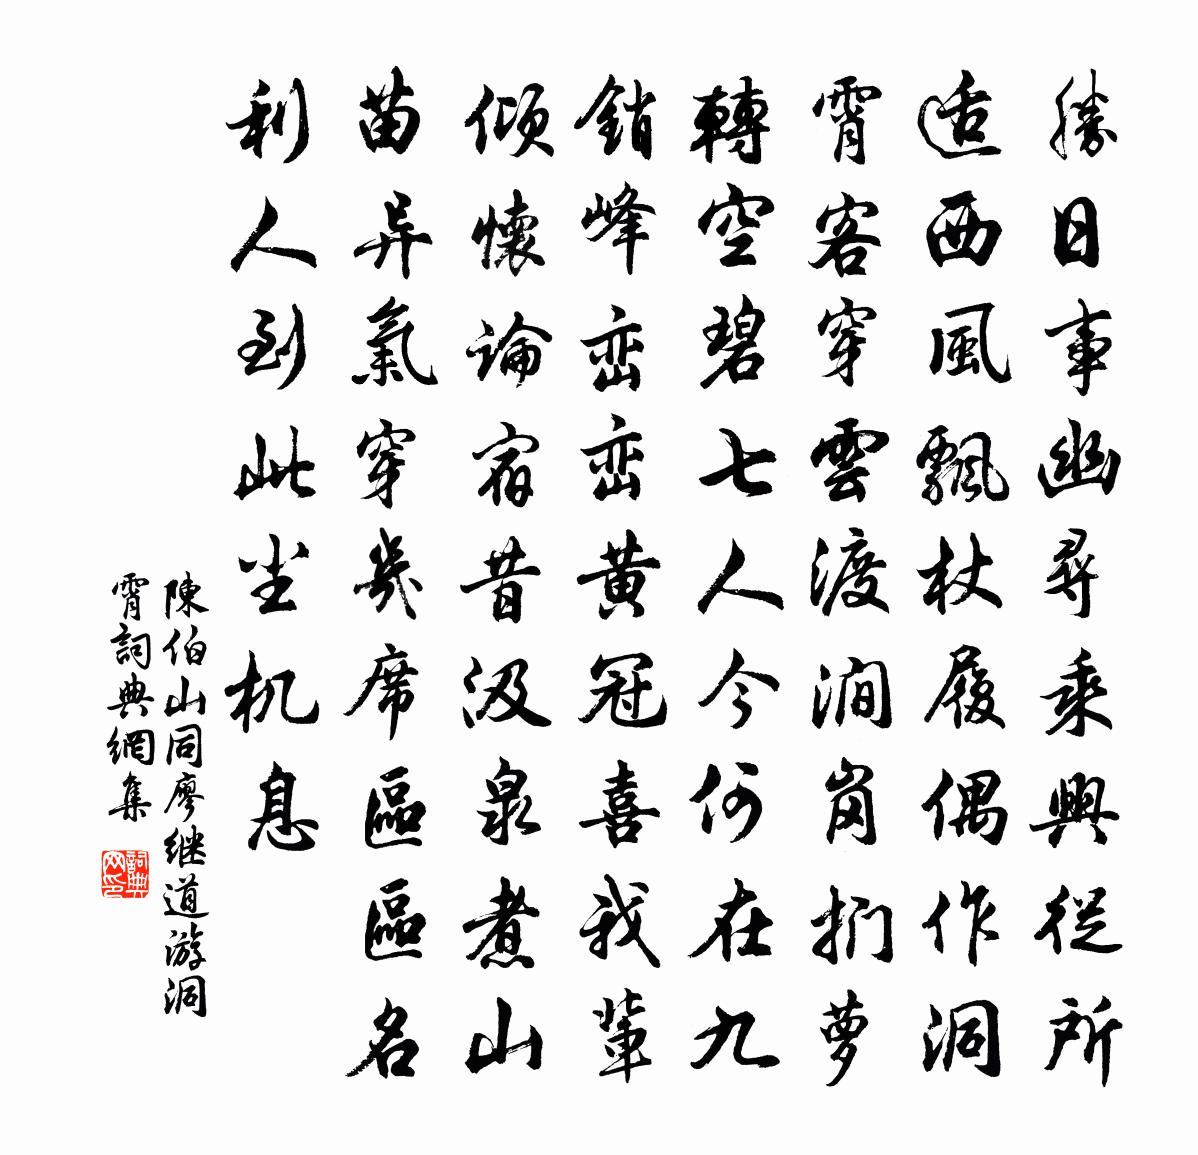 勝日事幽尋乘興從所
适西風飄杖履偶作洞
霄客穿雲渡澗崗捫萝
轉空碧七人今何在九
銷峰巒巒黄冠喜我輩
傾懷論宿昔汲泉煮山
苗异氣穿几席區區名
利人到此尘机息
陳伯山同廖继道游洞
霄詞典網集
詞典网印